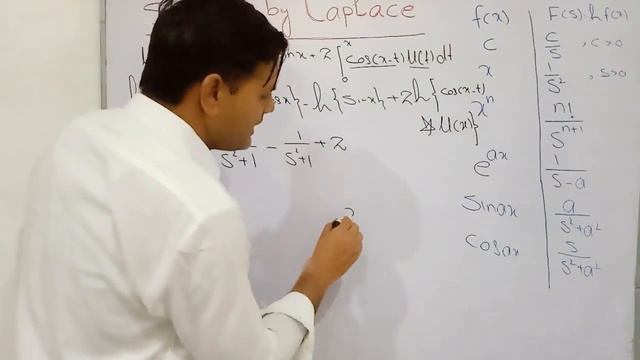 by Laplace
nx + 2∫₀ˣ cos(x-t)u(t)dt
x} - L{sinx} + 2L{cos(x-t)
* u(x)}
s²+1 - 1/(s²+1) + 2
f(x) | F(s) = L f(x)
c | c/s , c>0
x | 1/s² , s>0
xⁿ | n!/sⁿ⁺¹
eᵃˣ | 1/(s-a)
sinax | a/(s²+a²)
cosax | s/(s²+a²)